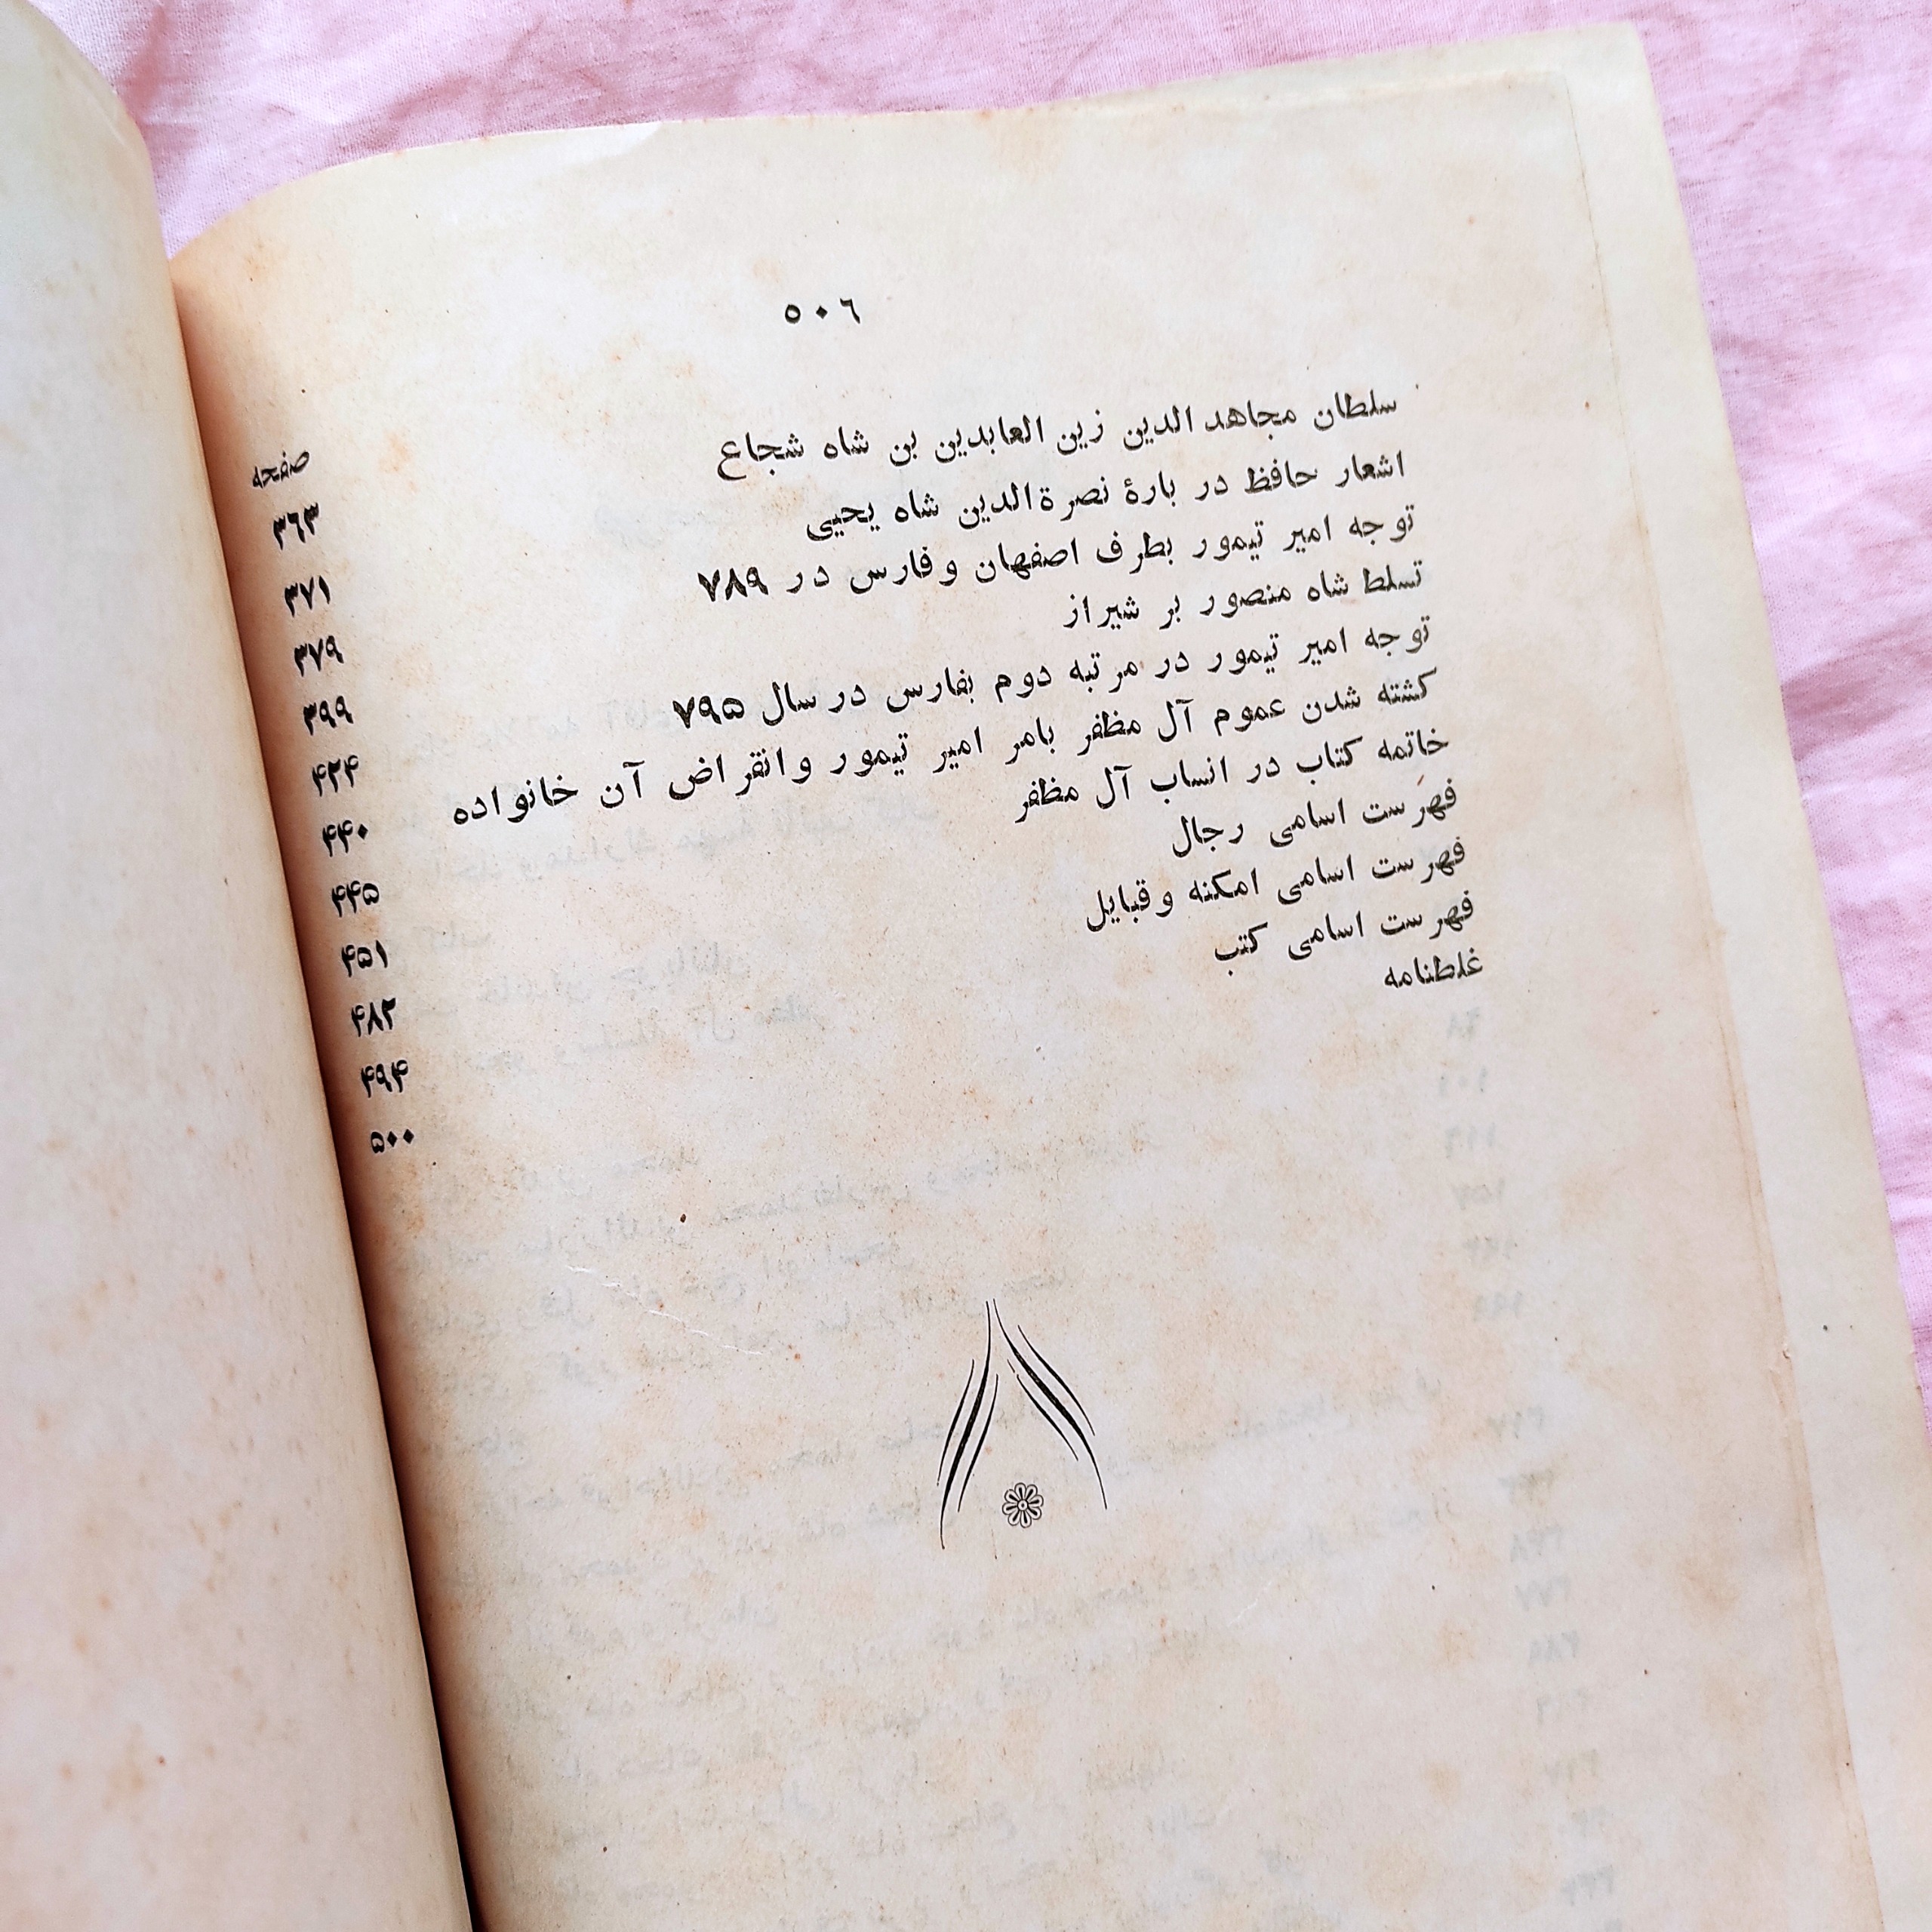 ٥٠٦
صفحه
سلطان مجاهد الدین زین العابدین بن شاه شجاع ۳٦۳
اشعار حافظ در بارۀ نصرةالدین شاه یحیی ۳۷۱
توجه امیر تیمور بطرف اصفهان وفارس در ۷۸۹ ۳۷۹
تسلط شاه منصور بر شیراز ۳۹۹
توجه امیر تیمور در مرتبه دوم بفارس در سال ۷۹۵ ۴۲۴
کشته شدن عموم آل مظفر بامر امیر تیمور وانقراض آن خانواده ۴۴۰
خاتمه کتاب در انساب آل مظفر ۴۴۵
فهرست اسامی رجال ۴۵۱
فهرست اسامی امکنه وقبایل ۴۸۲
فهرست اسامی کتب ۴۹۴
غلطنامه ۵۰۰